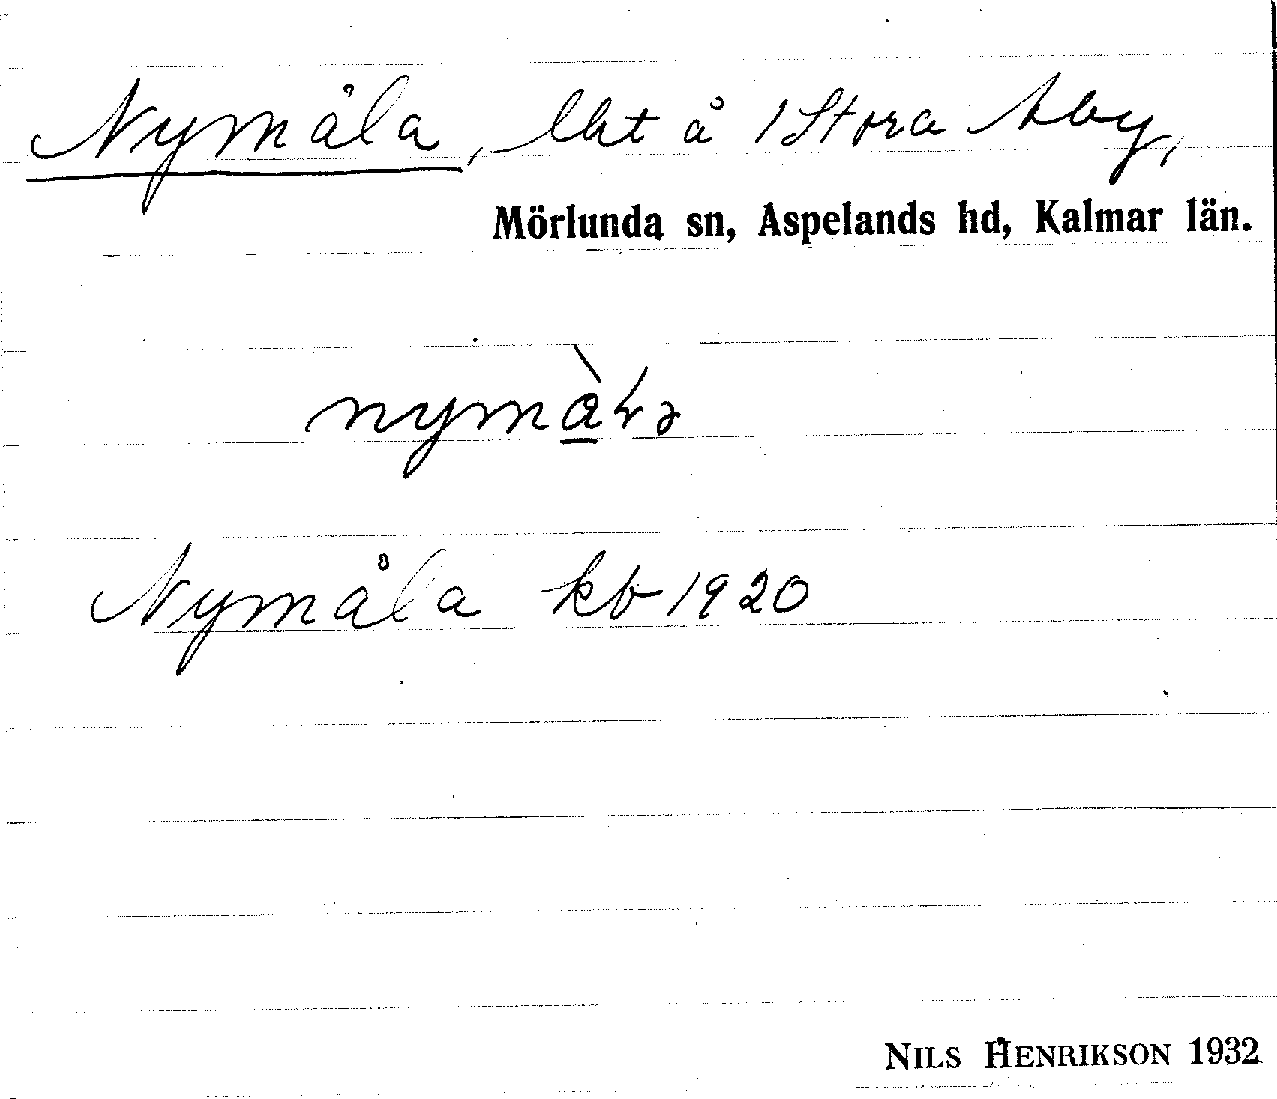 Nymåla, lht å 1 Stora Aby,
Mörlunda sn, Aspelands hd, Kalmar län.
Nymåla kb 1920
NILS HENRIKSON 1932